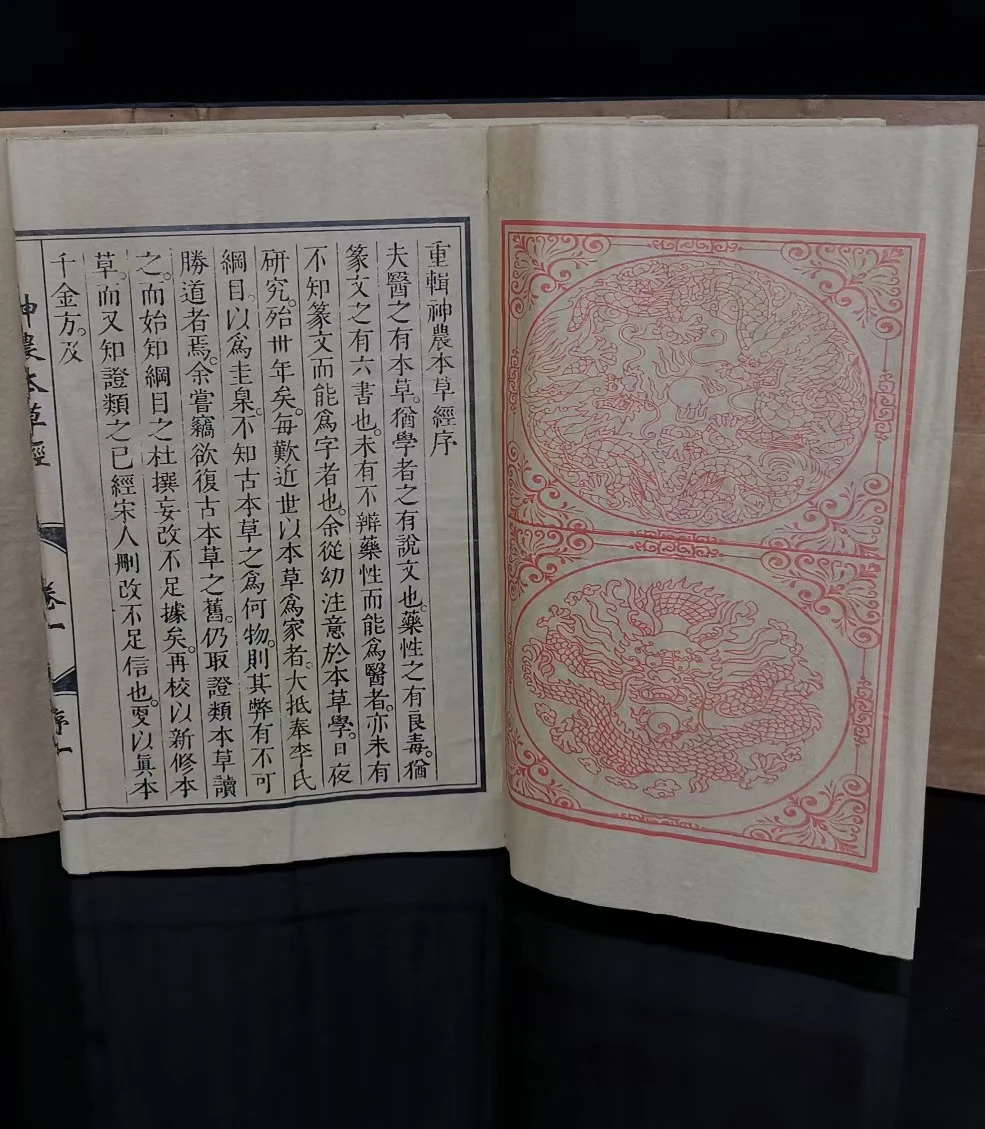 重輯神農本草經序
夫醫之有本草。猶學者之有說文也。藥性之有良毒。猶
篆文之有六書也。未有不辨藥性而能爲醫者。亦未有
不知篆文而能爲字者也。余從幼注意於本草學。日夜
研究。殆卅年矣。每歎近世以本草爲家者。大抵奉李氏
綱目。以爲圭臬。不知古本草之爲何物。則其弊有不可
勝道者焉。余嘗竊欲復古本草之舊。仍取證類本草讀
之。而始知綱目之杜撰妄改不足據矣。再校以新修本
草。而又知證類之已經宋人刪改不足信也。更以眞本
千金方。及
神農本草經
卷一
序一